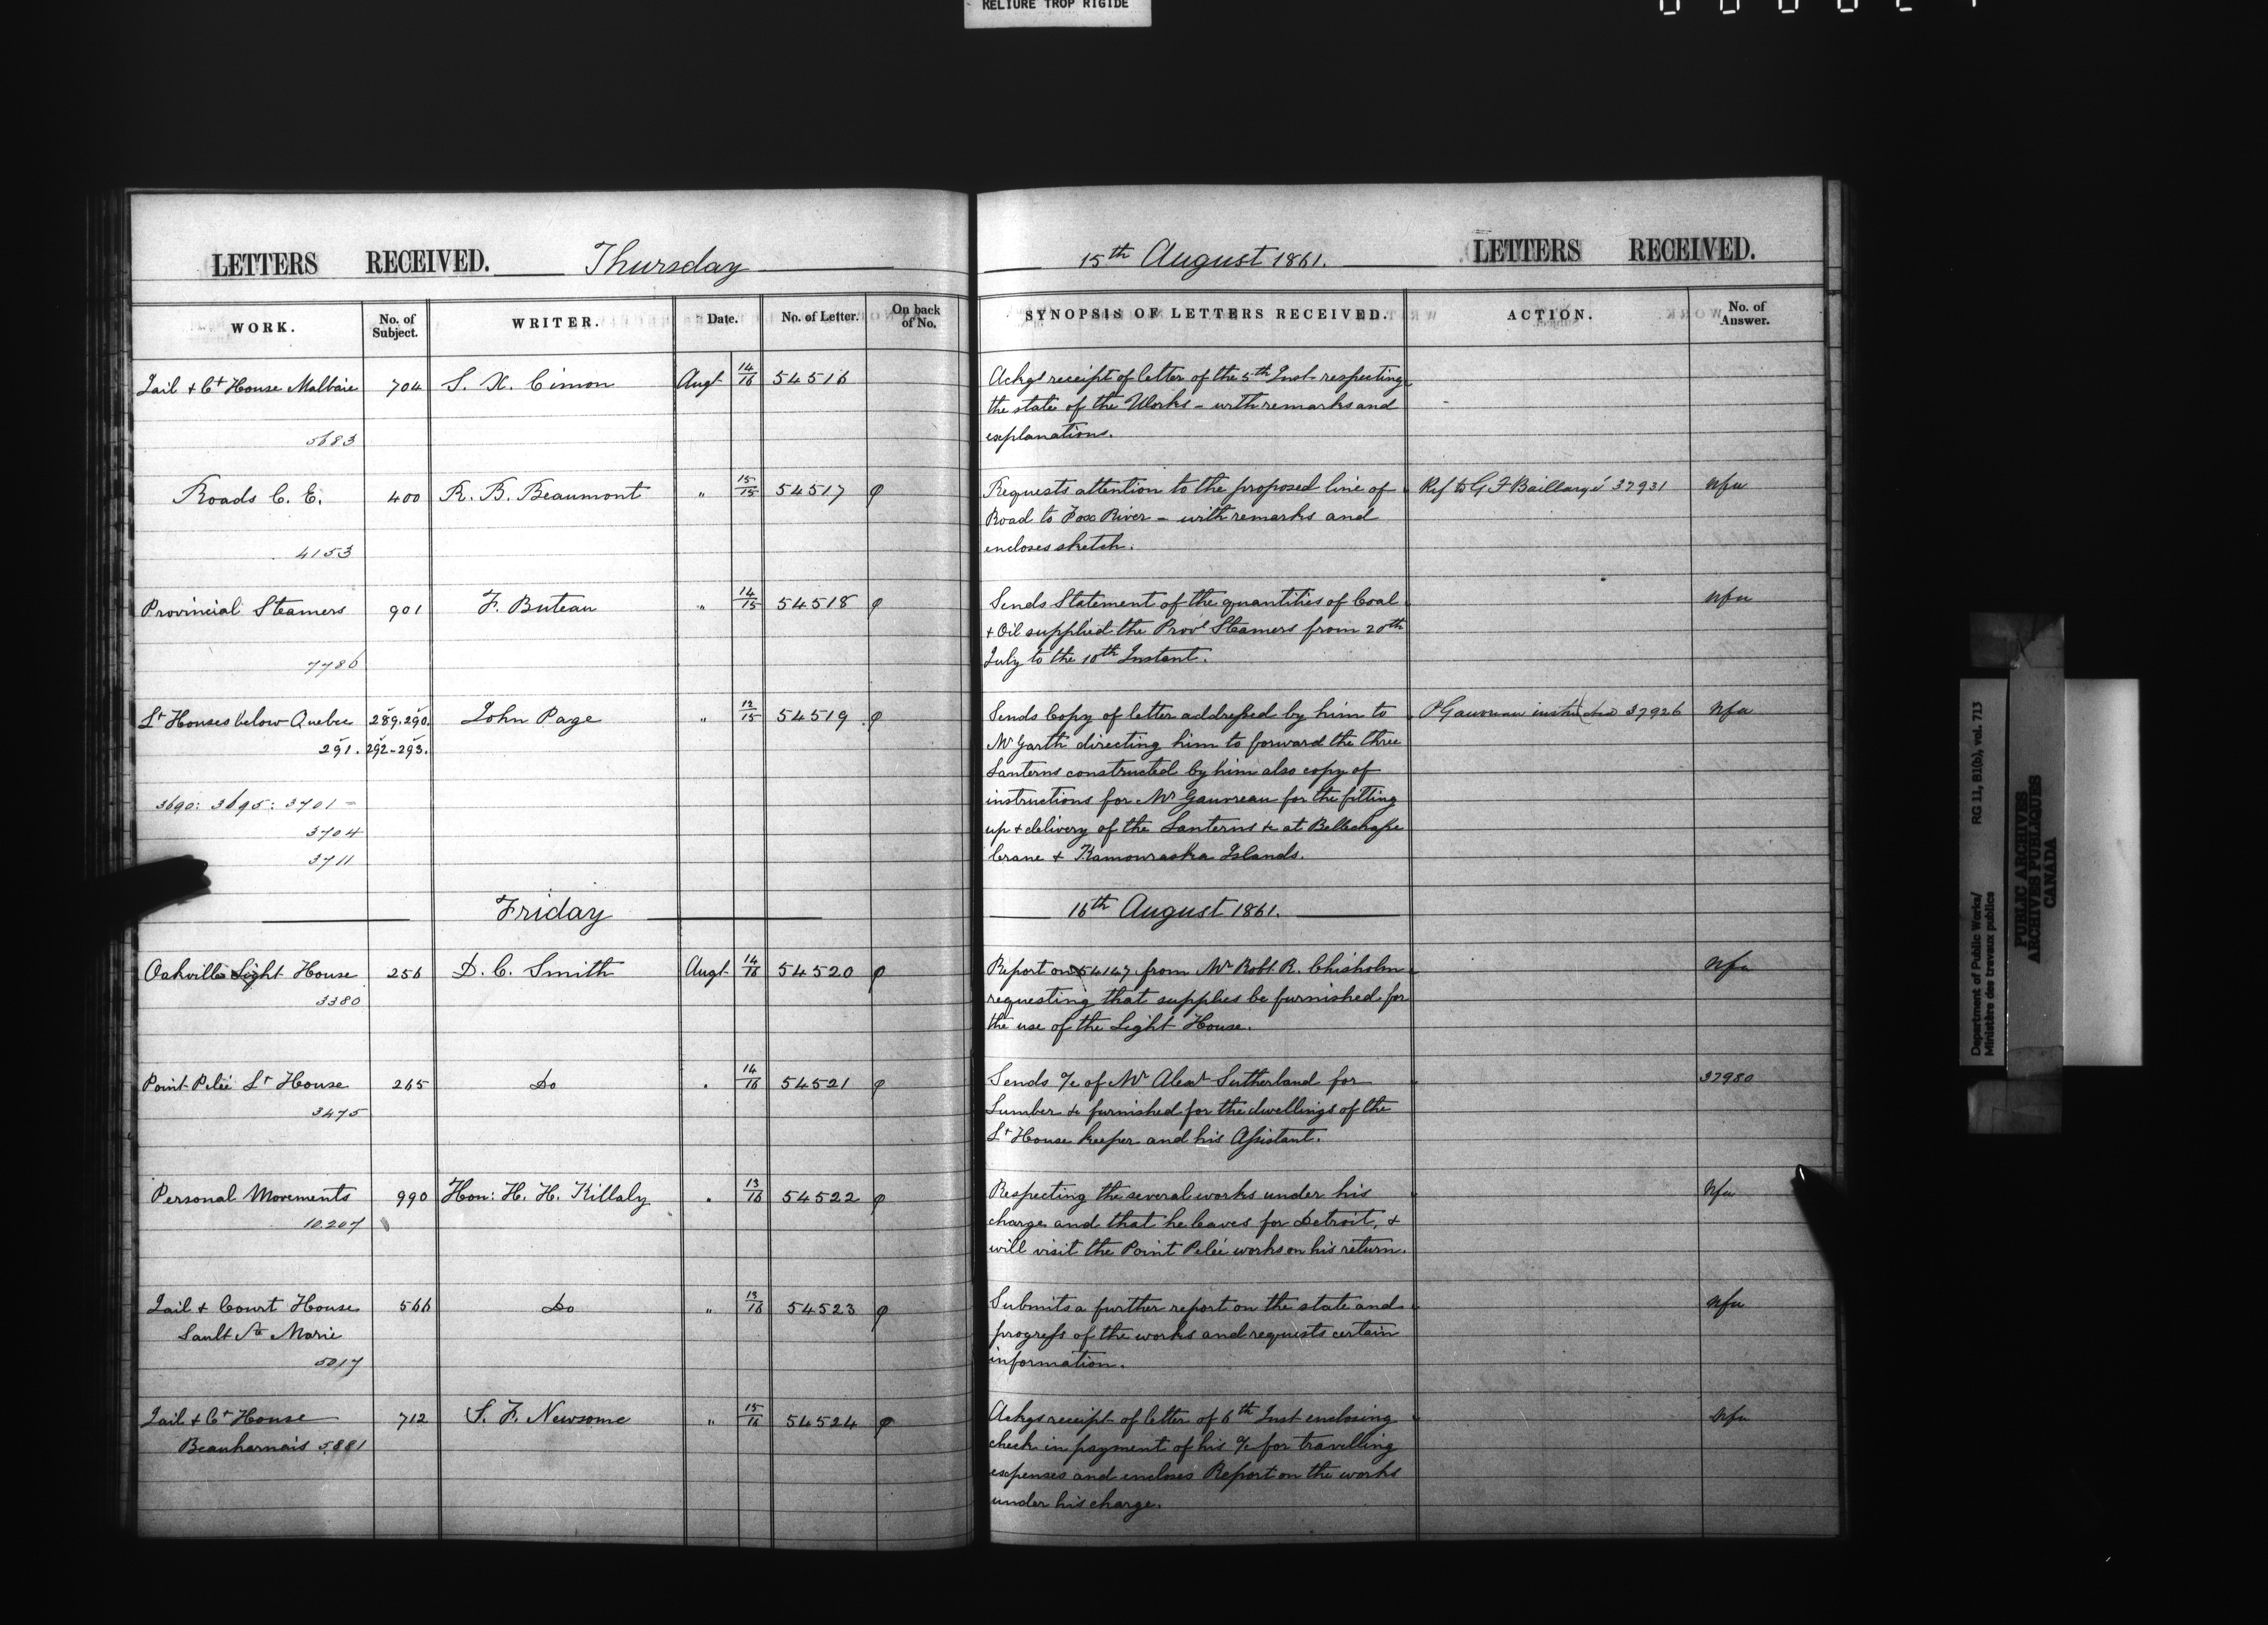 RELIURE TROP RIGIDE
LETTERS RECEIVED. Thursday
WORK. No. of Subject. WRITER. Date. No. of Letter. On back of No.
Jail & Ct House Malbaie 704 S. X. Cimon Augt 14/16 54516
5683
Roads C. E. 400 R. B. Beaumont " 15/15 54517 φ
4153
Provincial Steamers 901 F. Buteau " 14/15 54518 φ
7786
Lt Houses below Quebec 289. 290. John Page " 12/15 54519 φ
291. 292-293.
3690: 3695: 3701 =
3704
3711
Friday
Oakville Light House 256 D. C. Smith Augt 14/16 54520 φ
3380
Point Pelée Lt House 265 Do " 14/16 54521 φ
3475
Personal Movements 990 Hon: H. H. Killaly " 13/16 54522 φ
10.207
Jail & Court House 566 Do " 13/16 54523 φ
Sault Ste Marie
5017
Jail & Ct House 712 S. F. Newsome " 15/16 54524 φ
Beauharnais 5881
15th August 1861. LETTERS RECEIVED.
SYNOPSIS OF LETTERS RECEIVED. ACTION. No. of Answer.
Ackgs receipt of letter of the 5th Inst respecting
the state of the Works - with remarks and
explanations.
Requests attention to the proposed line of Ref to G F Baillargé 37931 Nfa
Road to Fox River - with remarks and
encloses sketch.
Sends Statement of the quantities of Coal Nfa
& Oil supplied the Provl Steamers from 20th
July to the 10th Instant.
Sends Copy of letter addressed by him to P Gauvreau instructed 37926 Nfa
Mr Garth directing him to forward the three
Lanterns constructed by him also copy of
instructions for Mr Gauvreau for the fitting
up & delivery of the Lanterns &c at Bellechasse
Crane & Kamouraska Islands.
16th August 1861.
Report on 54147 from Mr Robt. R. Chisholm Nfa
requesting that supplies be furnished for
the use of the Light House.
Sends a/c of Mr Alexr Sutherland for 37980
Lumber &c furnished for the dwellings of the
Lt House keeper and his Assistant.
Respecting the several works under his Nfa
charge and that he leaves for Detroit, &
will visit the Point Pelée works on his return.
Submits a further report on the state and Nfa
progress of the works and requests certain
information.
Ackgs receipt of letter of 6th Inst enclosing Nfa
check in payment of his a/c for travelling
expenses and encloses Report on the works
under his charge.
Department of Public Works/ RG 11, B1(b), vol. 713
Ministère des travaux publics
PUBLIC ARCHIVES
ARCHIVES PUBLIQUES
CANADA